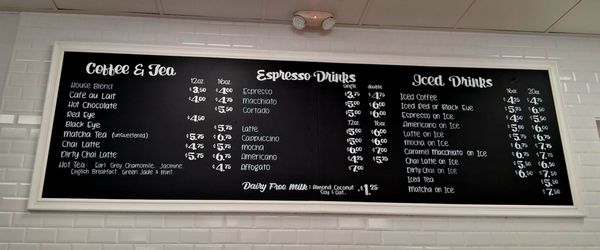 Coffee & Tea
12oz. 16oz.
House Blend $3.50 $4.00
Café au Lait $4.00 $4.75
Hot Chocolate $5.75
Red Eye $4.50
Black Eye
Matcha Tea (unsweetened) $5.75 $6.75
Chai Latte $4.75 $5.75
Dirty Chai Latte $5.75 $6.75
Hot Tea: Earl Grey, Chamomile, Jasmine, $4.75
English Breakfast, Green Jade & Mint.
Espresso Drinks
single double
Espresso $3.75 $4.75
Macchiato $5.00 $6.00
Cortado $5.00 $6.00
12oz. 16oz.
Latte $5.00 $6.00
Cappuccino $5.00 $6.00
Mocha $6.00 $7.00
Americano $4.25 $5.25
Affogato $7.00
Dairy Free Milk: Almond, Coconut, $1.25
Soy & Oat.
Iced Drinks
16oz. 20oz.
Iced Coffee
Iced Red or Black Eye
Espresso on Ice
Americano on Ice
Latte on Ice
Mocha on Ice
Caramel Macchiato on Ice
Chai Latte on Ice
Dirty Chai on Ice
Iced Tea
Matcha on Ice